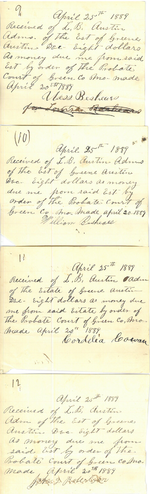 9
April 25th 1889
Received of L.B. Austin
Adms. of the Est of Greene
Austin Dec Eight dollars
As money due me from said
Est by order of the Probate
Court of Green Co Mo. made
April 20th 1889
(10)
April 25th 1889
Received of L.B. Austin Adms
of the Est of Greene Austin
Dec Eight dollars as money
due me from said Est by
order of the Probate Court of
Green Co, Mo. Made April 20 1889
William
11
April 25th 1889
Received of L.B. Austin Adm
of the Estate of Greene Austin
Dec. eight dollars as money due
me from said Estate by order of
the Probate Court of Green Co. Mo
Made April 20th 1889
Cordelia
12
April 25th 1889
Received of L.B. Austin
Adm of the Est of Greene
Austin Dec eight dollars
As money due me from
said Est by order of the
Probate Court of Green Co Mo.
Made April 20th 1889
John